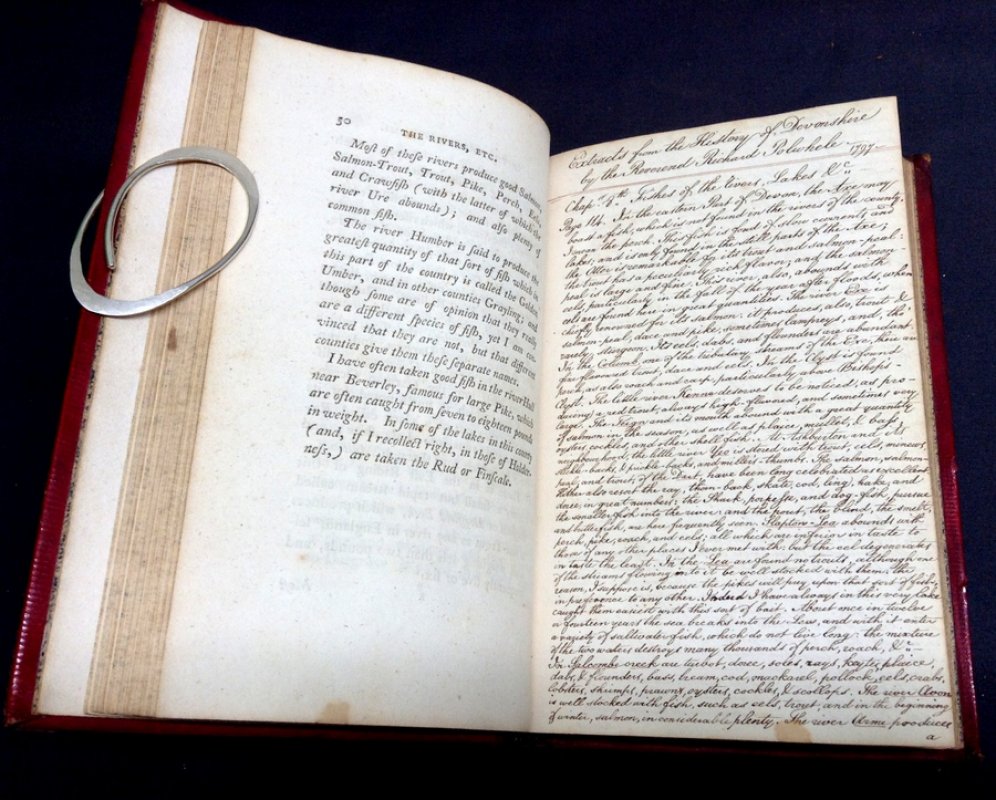 50
THE RIVERS, ETC.
Moſt of theſe rivers produce good Salmon,
Salmon-Trout, Trout, Pike, Perch, Eels,
and Crawfiſh (with the latter of which the
river Ure abounds); and alſo plenty of
common fiſh.
The river Humber is ſaid to produce the
greateſt quantity of that ſort of fiſh which in
this part of the country is called the Golden
Umber, and in other counties Grayling; and
though ſome are of opinion that they really
are a different ſpecies of fiſh, yet I am con-
vinced that they are not, but that different
counties give them theſe ſeparate names.
I have often taken good fiſh in the river Hull
near Beverley, famous for large Pike, which
are often caught from ſeven to eighteen pounds
in weight. In ſome of the lakes in this country
(and, if I recollect right, in thoſe of Holder-
neſs,) are taken the Rud or Finſcale.
Extracts from the History of Devonshire
by the Reverend Richard Polwhele 1797
Chap. 5th. Fishes of the rivers, Lakes &c.
Page 114. In the eastern Part of Devon, the Axe may
boast a fish, which is not found in the rivers of the county,
I mean the perch. This fish is fond of slow currents, and
lakes, and is only found in the still parts of the Axe;
the Otter is remarkable for its trout and salmon-peal:
the trout has a peculiarly rich flavor, and the salmon-
peal is large and fine. This river, also, abounds with
eels, particularly in the fall of the year after floods, when
eels are found here in great quantities. The river Exe is
chiefly renowned for its salmon: it produces, also, trout &
salmon-peal, dace and pike, sometimes lampreys, and, tho'
rarely, sturgeon. Its eels, dabs, and flounders are abundant.
In the Columb, one of the tributary streams of the Exe, there are
fine flavoured trout, dace and eels. In the Clyst is found
trout, as also roach and carp particularly above Bishops-
Clyst. The little river Kenne deserves to be noticed, as pro-
ducing a red trout, always high-flavored, and sometimes very
large. The Teign and its mouth abound with a great quantity
of salmon in the season, as well as plaice, mullet, & bass,
oysters, cockles, and other shell fish. At Ashburton and its
neighbourhood, the little river Yeo is stored with trout, eels, minnows
stickle-backs, & prickle-backs, and miller's-thumbs. The salmon, salmon-
peal, and trout, of the Dart, have been long celebrated as excellent.
Hither also resort the ray, thorn-back, skate, cod, ling, hake, and
doree, in great numbers; the Shark, porpesse, and dog-fish, pursue
the smaller fish into the river: and the pout, the blind, the smelt,
and butter-fish, are here frequently seen. Slapton-Lea abounds with
perch, pike, roach, and eels; all which are inferior in taste to
them of any other places I ever met with: but the eel degenerates
in taste the least. In the Lea are found no trouts, although one
of the streams flowing into it be well stocked with them; the
reason, I suppose is, because the pikes will prey upon that sort of fish
in preference to any other. Indeed I have always in this very lake
caught them easiest with this sort of bait. About once in twelve
or fourteen years the sea breaks into the Lea, and with it enter
a variety of saltwater fish, which do not live long: the mixture
of the two waters destroys many thousands of perch, roach, &c.
In Salcombe creek are turbot, doree, soles, rays, plaice,
dabs, & flounders, bass, bream, cod, mackarel, pollock, eels, crabs,
lobsters, shrimps, prawns, oysters, cockles, & scollops. The river Avon
is well stocked with fish, such as eels, trout, and in the beginning
of winter, salmon, in considerable plenty. The river Arme produces
a